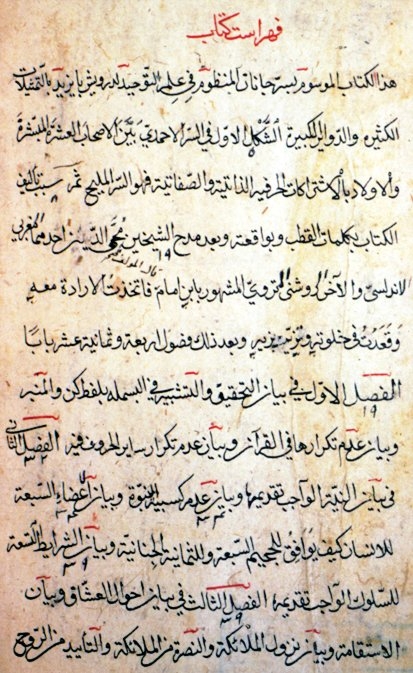 فهراست كتاب
هذا الكتاب الموسوم بسر جانان المنظوم في علم التوحيد لدرويش بايزيد بالتمثيلات
الكثيره والدواير الكبيرة الشكل الاول في السر الاحمدي بين الاصحاب العشرة المبشرة
والاولاد بالاشتراكات الحرفيه الذاتية والصفاتية فهو السر المليح ثم سبب تاليف
الكتاب بكلمات القطب وبواقعته وبعد مدح الشيخين محي الدين احدهما المغربي
قال المؤلف
الاندلسي والآخر الروشني التروي المشهور بابن امام فاتخذت الارادة معه
١٩
وقعدت في خلوته وبعد ذلك فصول اربعة وثمانية عشر بابا
الفصل الاول في بيان التحقيق والتشبيه في البسمله بلفظ كن والمنبر
١٩
وبيان عدم تكرارها في القرآن وبيان عدم تكرار ساير الحروف فيه الفصل الثاني
في بيان النية الواجب تقديمها وبيان عدم كسبية النبوة وبيان اعضاء السبعة
للانسان كيف يوافق للجحيم السبعة وللثمانية الجنانية وبيان الشرايط التسعة
للسلوك الواجب تقديمها الفصل الثالث في بيان احوال العشاق وبيان
الاستقامة وبيان نزول الملائكة والنصرة من الملائكة والتاييد من الروح